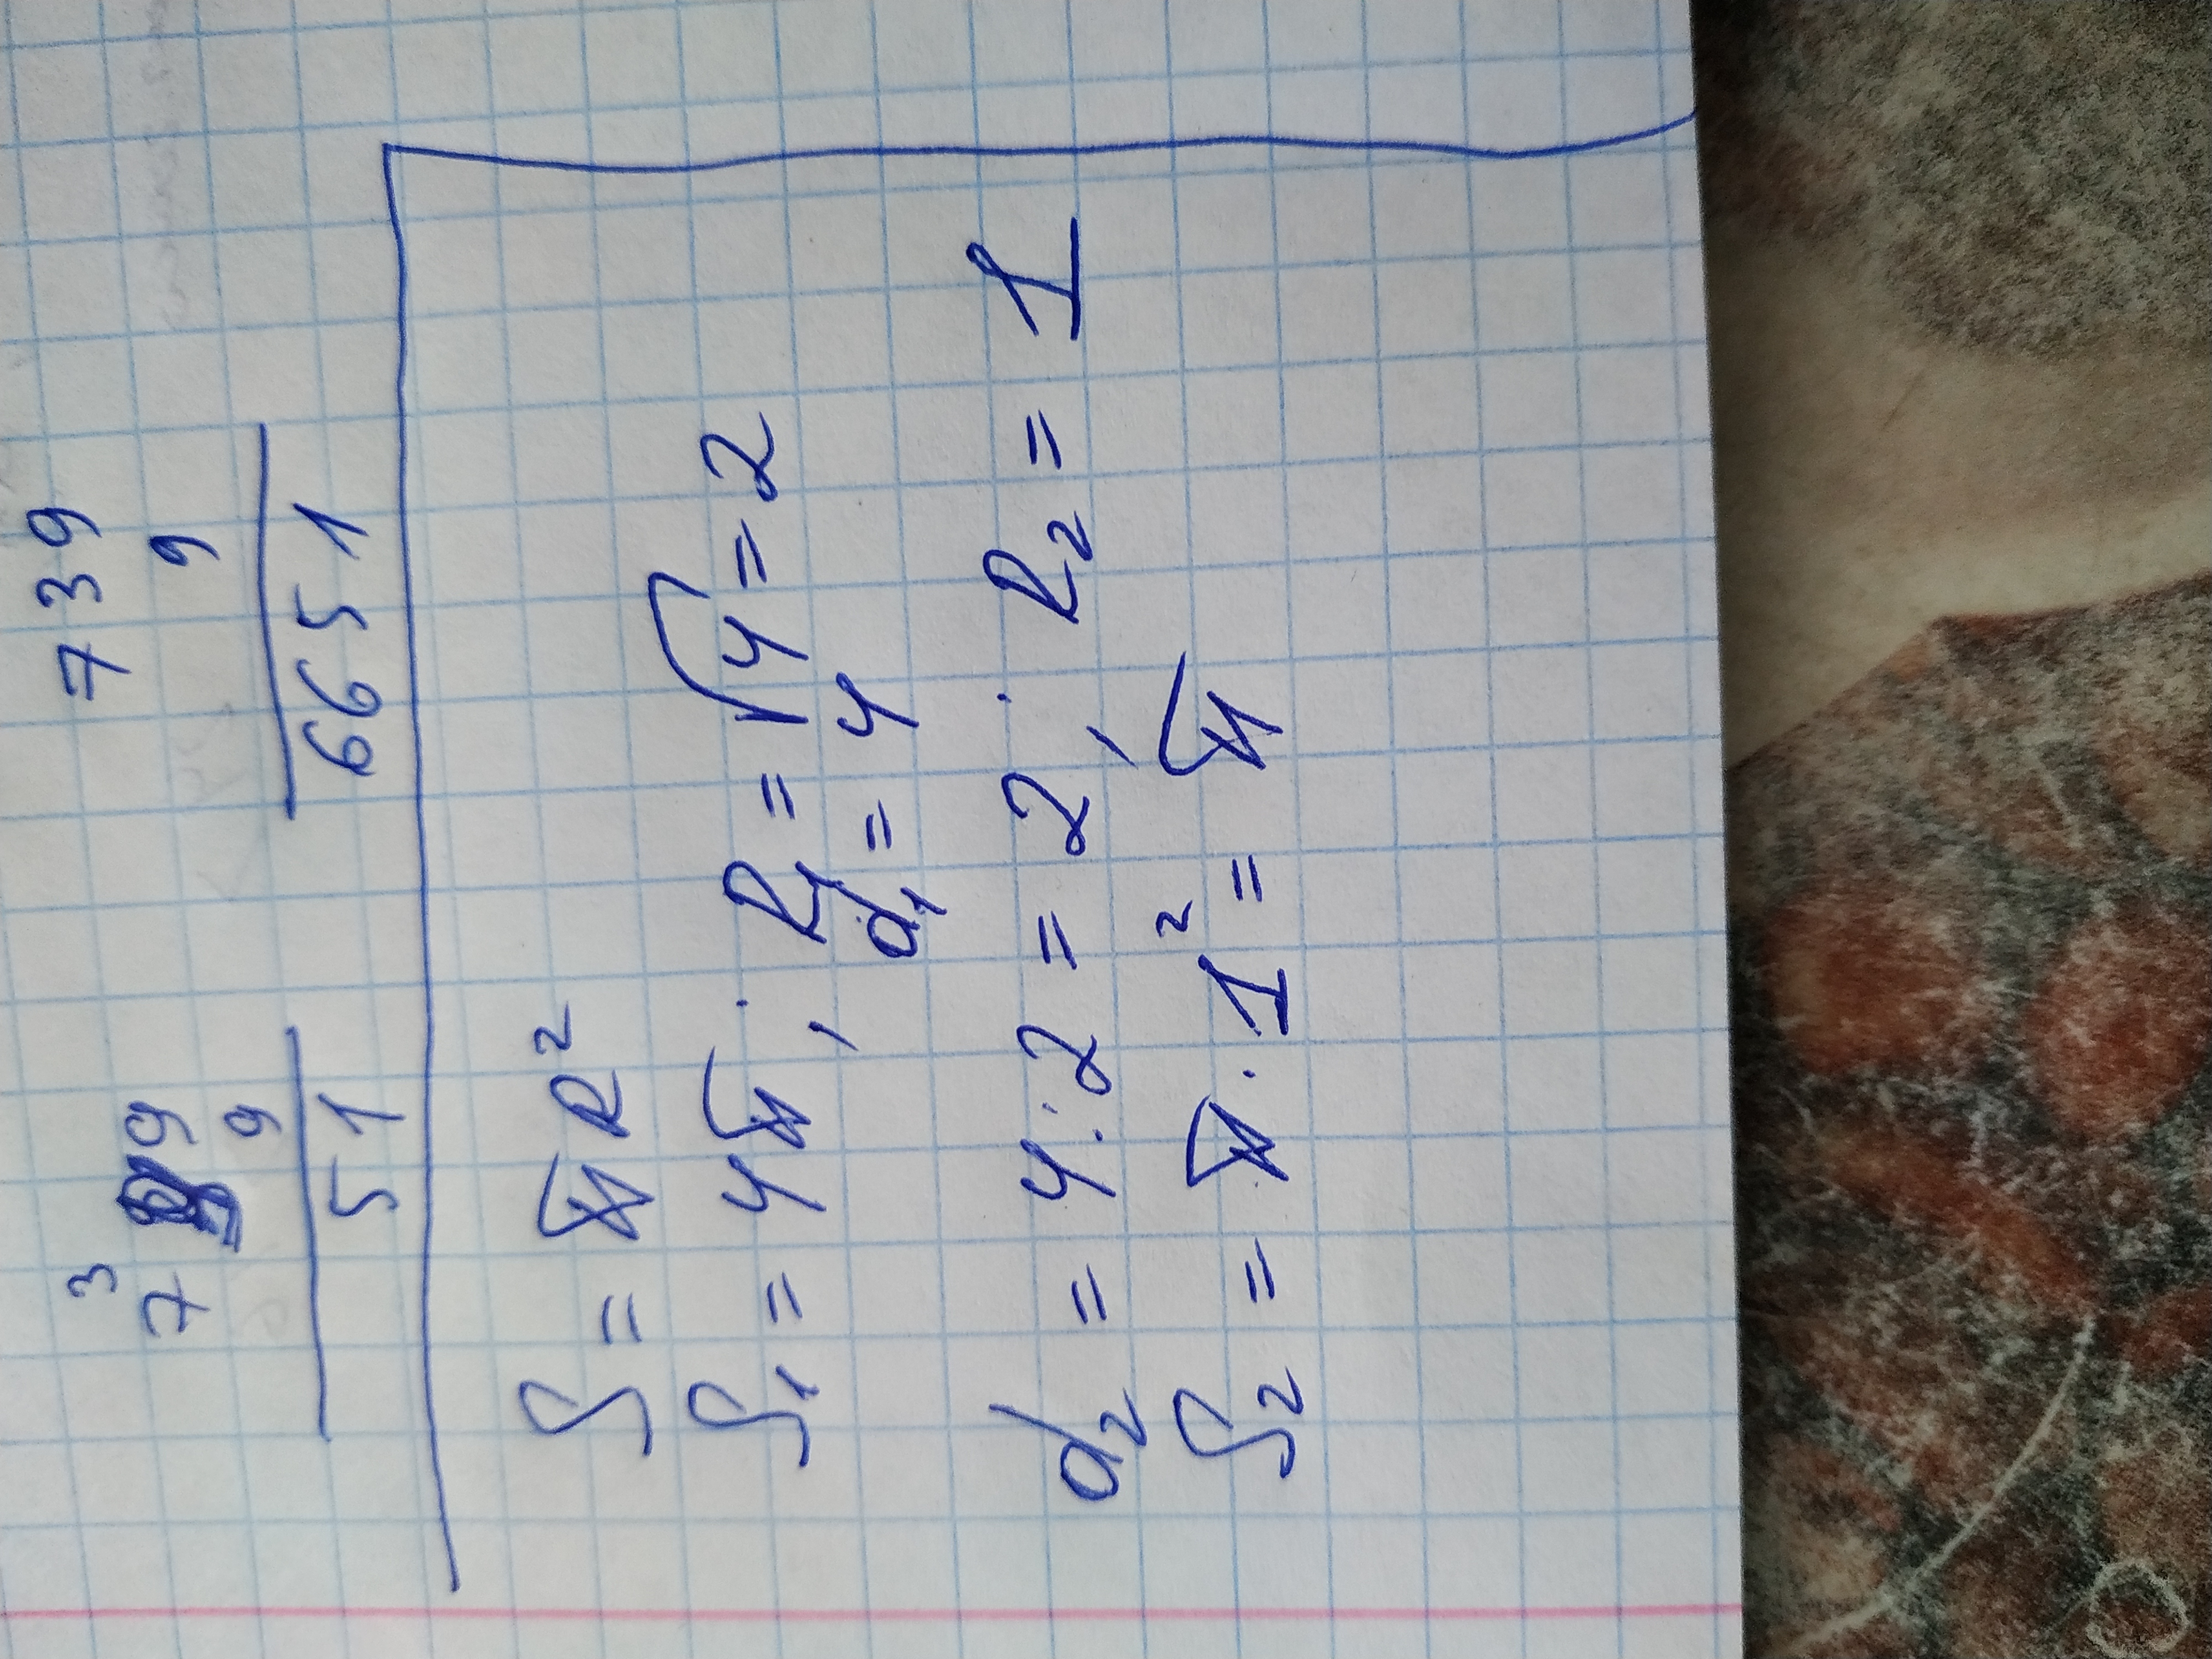 3
7 9 739
9 9
51 6651
S = πR²
S₁ = 4π ; R₁ = √4 = 2
d₁ = 4
d₂ = 4 : 2 = 2 ; R₂ = 1
S₂ = π · 1² = π